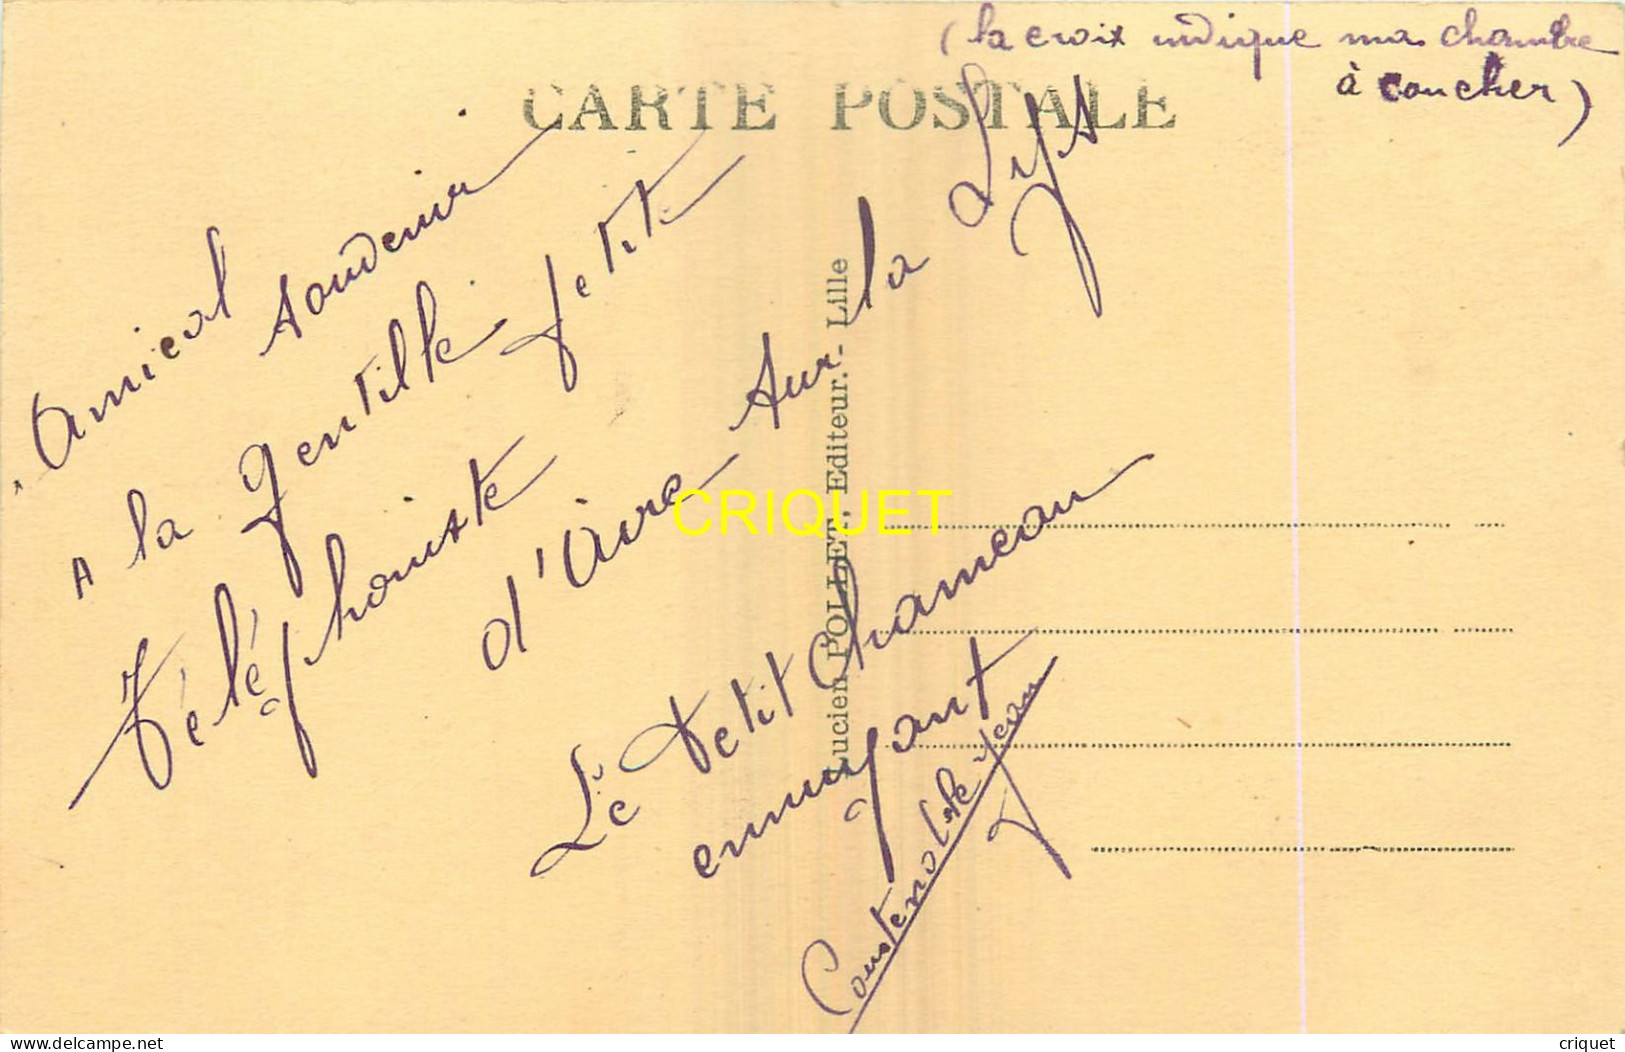 (la croix indique ma chambre
à coucher)
CARTE POSTALE
Amical souvenir
A la gentille petite
Téléphoniste
d'Aire sur la Lys
Le Petit Chameau
ennuyant
Jean
Lucien POLLET, Editeur.- Lille
CRIQUET
delcampe.net
criquet